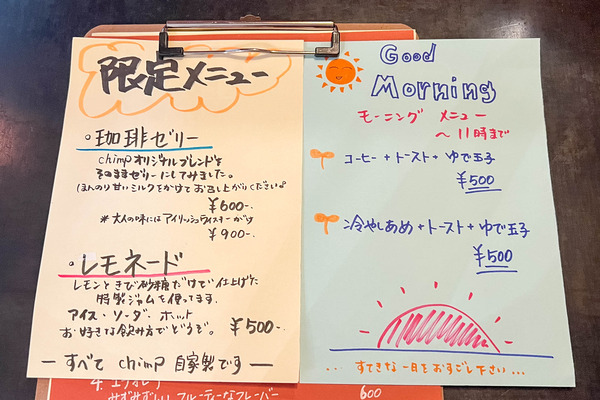 限定メニュー
・珈琲ゼリー
chimpオリジナルブレンドを
そのままゼリーにしてみました。
(ほんのり甘いミルクをかけてお召し上がりください♪
¥600-.
*大人の味にはアイリッシュウイスキーがけ
¥900-.
・レモネード
レモンときび砂糖だけで仕上げた
特製ジャムを使ってます。
アイス・ソーダ・ホット
お好きな飲み方でどうぞ。 ¥500-.
ーすべて chimp 自家製ですー
Good
Morning
モーニング メニュー
〜11時まで
コーヒー+トースト+ゆで玉子
¥500
冷やしあめ+トースト+ゆで玉子
¥500
... すてきな一日をおすごし下さい...
みずみずしい フルーティーなフレーバー 600